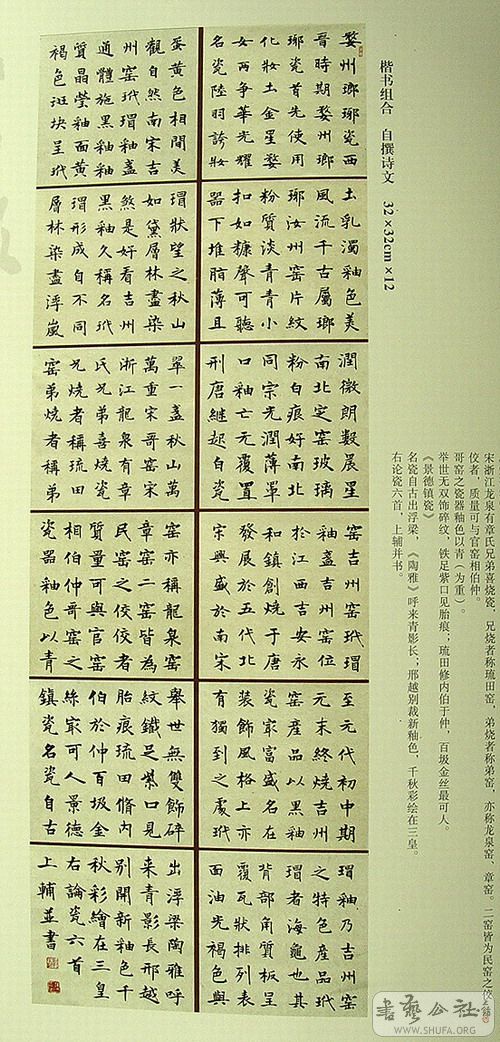 楷书组合 自撰诗文 32×32cm×12
婺州瑯瑯瓷西
晉時期婺州瑯
瑯瓷首先使用
化妝土金星婺
女兩爭華光耀
名瓷陸羽誇妝
土乳濁釉色美
風流千古屬瑯
瑯汝州窯片紋
粉質淡青青小
扣如糠聲可聽
器下堆脂薄且
潤微朗數晨星
南北定窯玻璃
粉白痕好南北
同宗光潤薄單
口釉亡元覆置
刑唐繼起白瓷
窯吉州窯玳瑁
釉盞吉州窯位
於江西吉安永
和鎮創燒于唐
發展於五代北
宋興盛於南宋
至元代初中期
元末終燒吉州
窯產品以黑釉
瓷家富盛名在
裝飾風格上亦
有獨到之處玳
瑁釉乃吉州窯
之特色產品玳
瑁者海龜也其
背部角質板呈
覆瓦狀排列表
面油光褐色與
蛋黃色相間美
觀自然南宋吉
州窯玳瑁釉盞
通體施黑釉釉
質晶瑩釉面黃
褐色斑块呈玳
瑁狀望之秋山
如黛層林盡染
煞是好看吉州
黑釉久稱名玳
瑁形成自不同
層林染盡浮嵐
翠一盞秋山萬
萬重宋哥窯宋
浙江龍泉有章
氏兄弟喜燒瓷
兄燒者稱琉田
窯弟燒者稱弟
窯亦稱龍泉窯
章窯二窯皆為
民窯之佼佼者
質量可與官窯
相伯仲哥窯之
瓷器釉色以青
舉世無雙飾碎
紋鐵足紫口見
胎痕琉田脩内
伯於仲百圾金
絲最可人景德
鎮瓷名瓷自古
出浮梁陶雅呼
來青影長邢越
別開新釉色千
秋彩繪在三皇
右論瓷六首
上輔並書
宋浙江龙泉有章氏兄弟喜烧瓷，兄烧者称琉田窑，弟烧者称弟窑，亦称龙泉窑、章窑。二窑皆为民窑之佼
佼者，质量可与官窑相伯仲。
哥窑之瓷器釉色以青（为重）。
举世无双饰碎纹，铁足紫口见胎痕；琉田修内伯于仲，百圾金丝最可人。
《景德镇瓷》
名瓷自古出浮梁，《陶雅》呼来青影长；邢越别裁新釉色，千秋彩绘在三皇。
右论瓷六首，上辅并书。
書藝公社
WWW.SHUFA.ORG